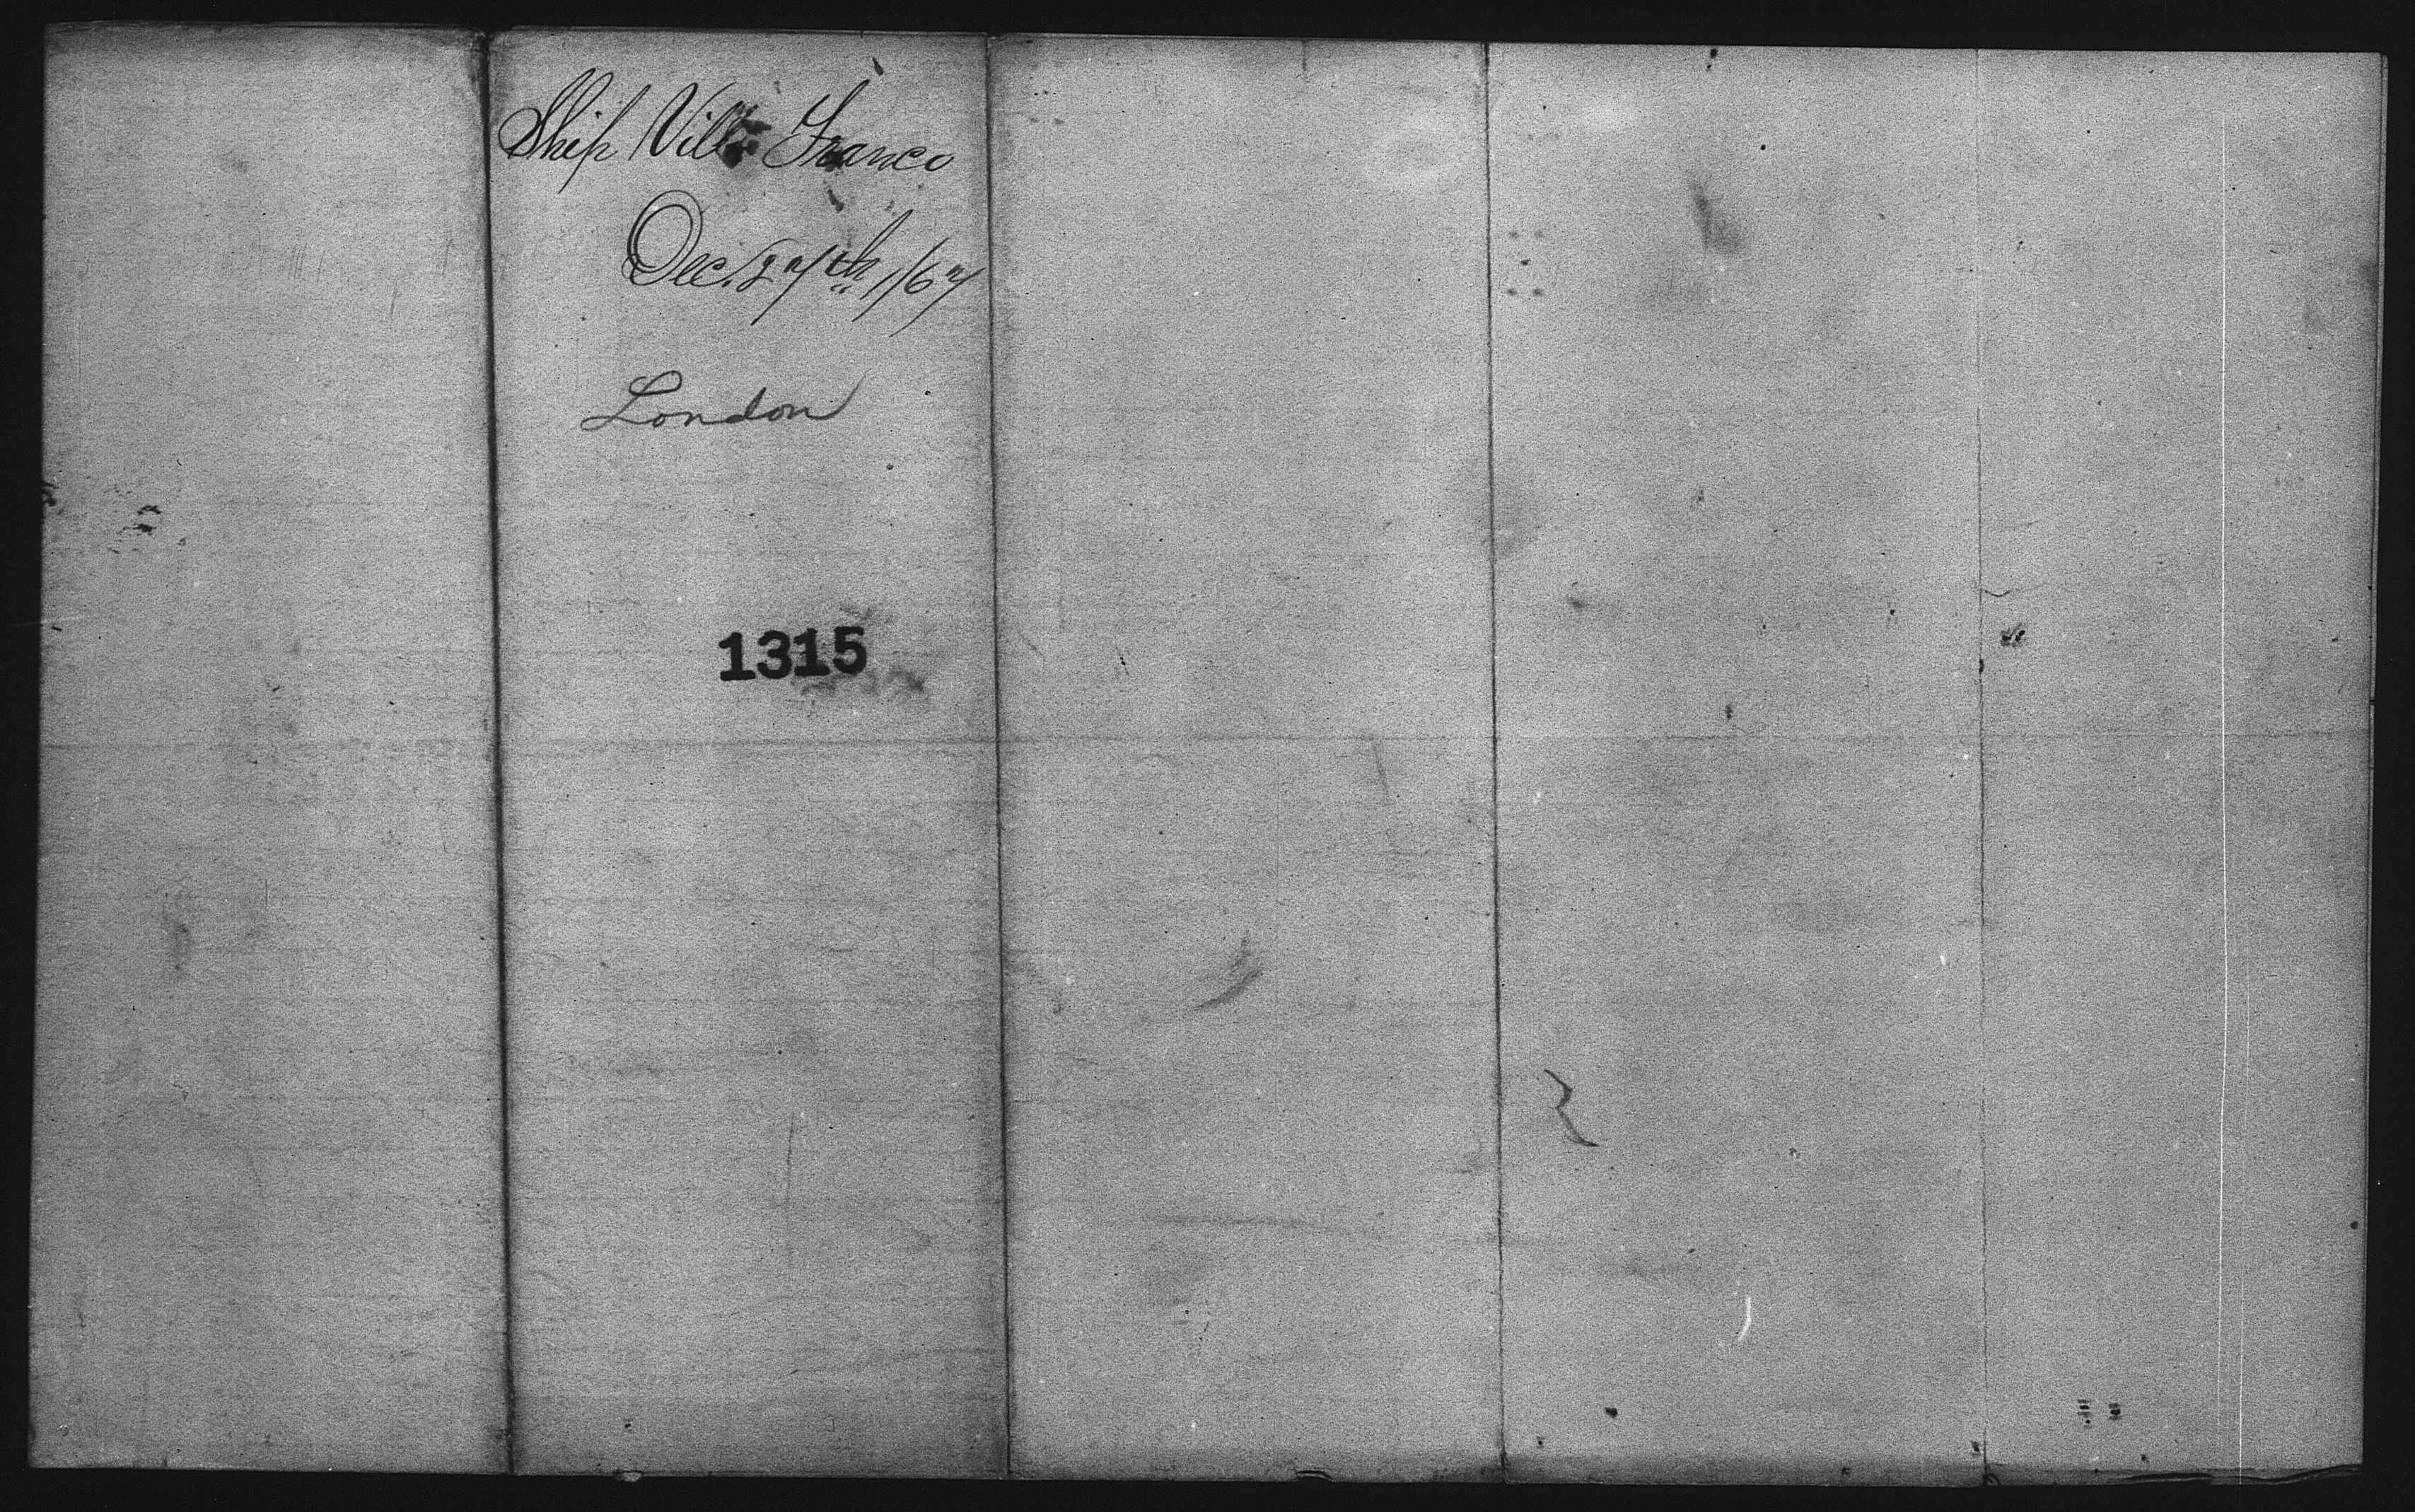 Ship Villa Franca
Dec. 27th /67
London
1315